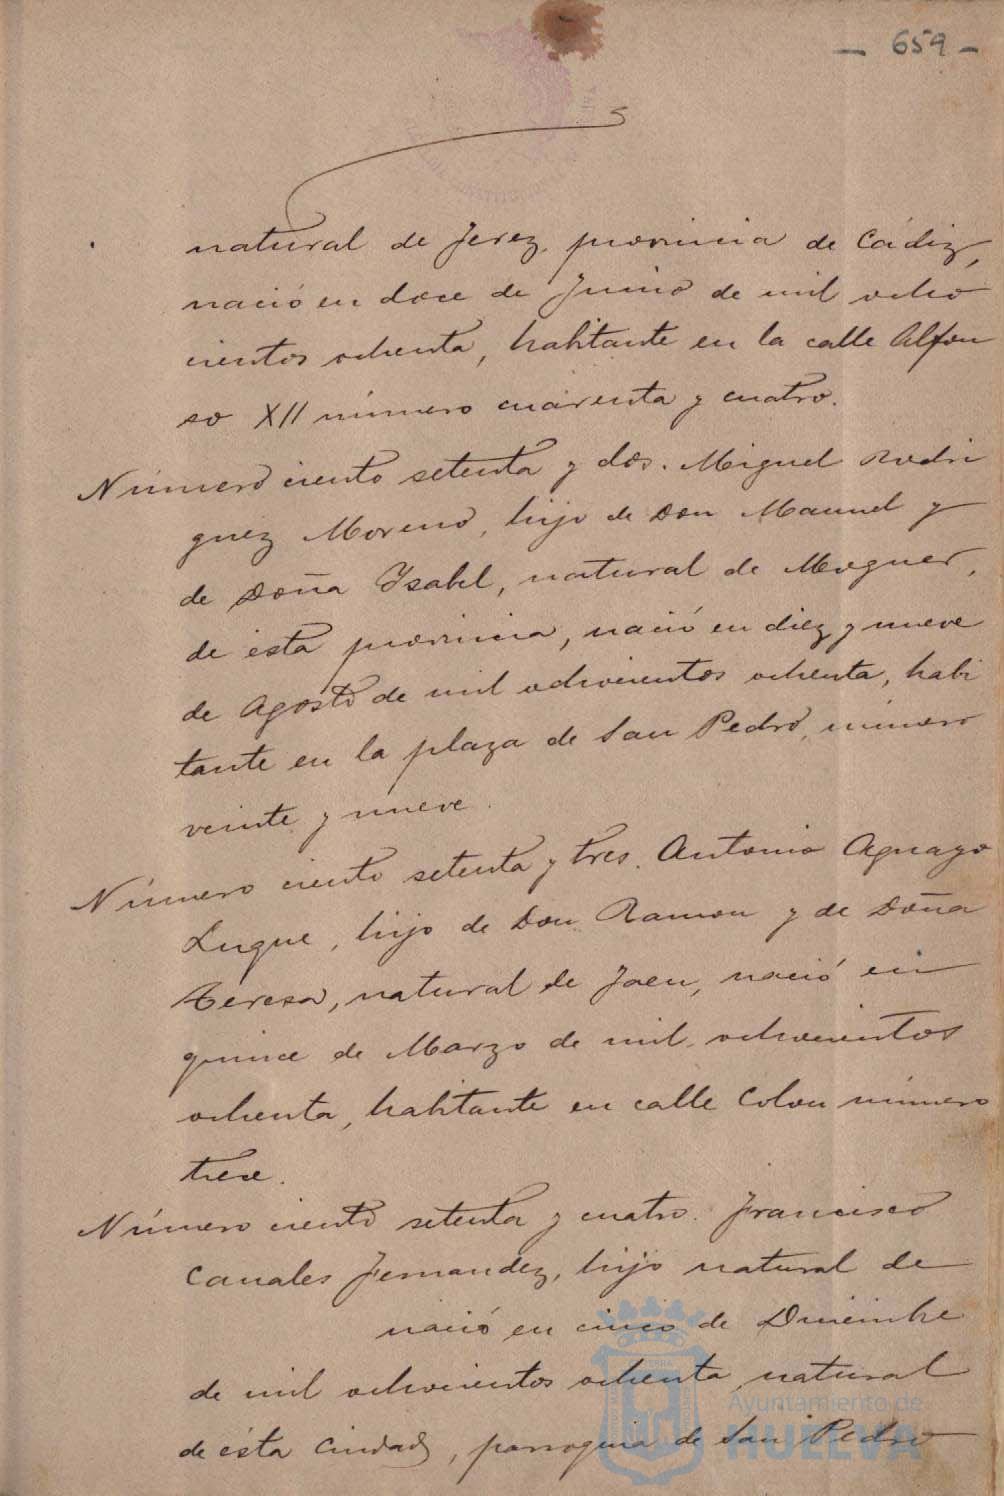 — 659 —
natural de Jerez, provincia de Cádiz,
nació en doce de Junio de mil ocho
cientos ochenta, habitante en la calle Alfon
so XII número cuarenta y cuatro.
Número ciento setenta y dos. Miguel Rodri
guez Moreno, hijo de Don Manuel y
de Doña Isabel, natural de Moguer,
de ésta provincia, nació en diez y nueve
de Agosto de mil ochocientos ochenta, habi
tante en la plaza de San Pedro, número
veinte y nueve.
Número ciento setenta y tres. Antonio Aguayo
Luque, hijo de Don Ramon y de Doña
Teresa, natural de Jaen, nació en
quince de Marzo de mil ochocientos
ochenta, habitante en calle Colon número
trece.
Número ciento setenta y cuatro. Francisco
Canales Fernandez, hijo natural de
nació en cinco de Diciembre
de mil ochocientos ochenta, natural
de ésta Ciudad, parroquia de San Pedro
Ayuntamiento de
HUELVA